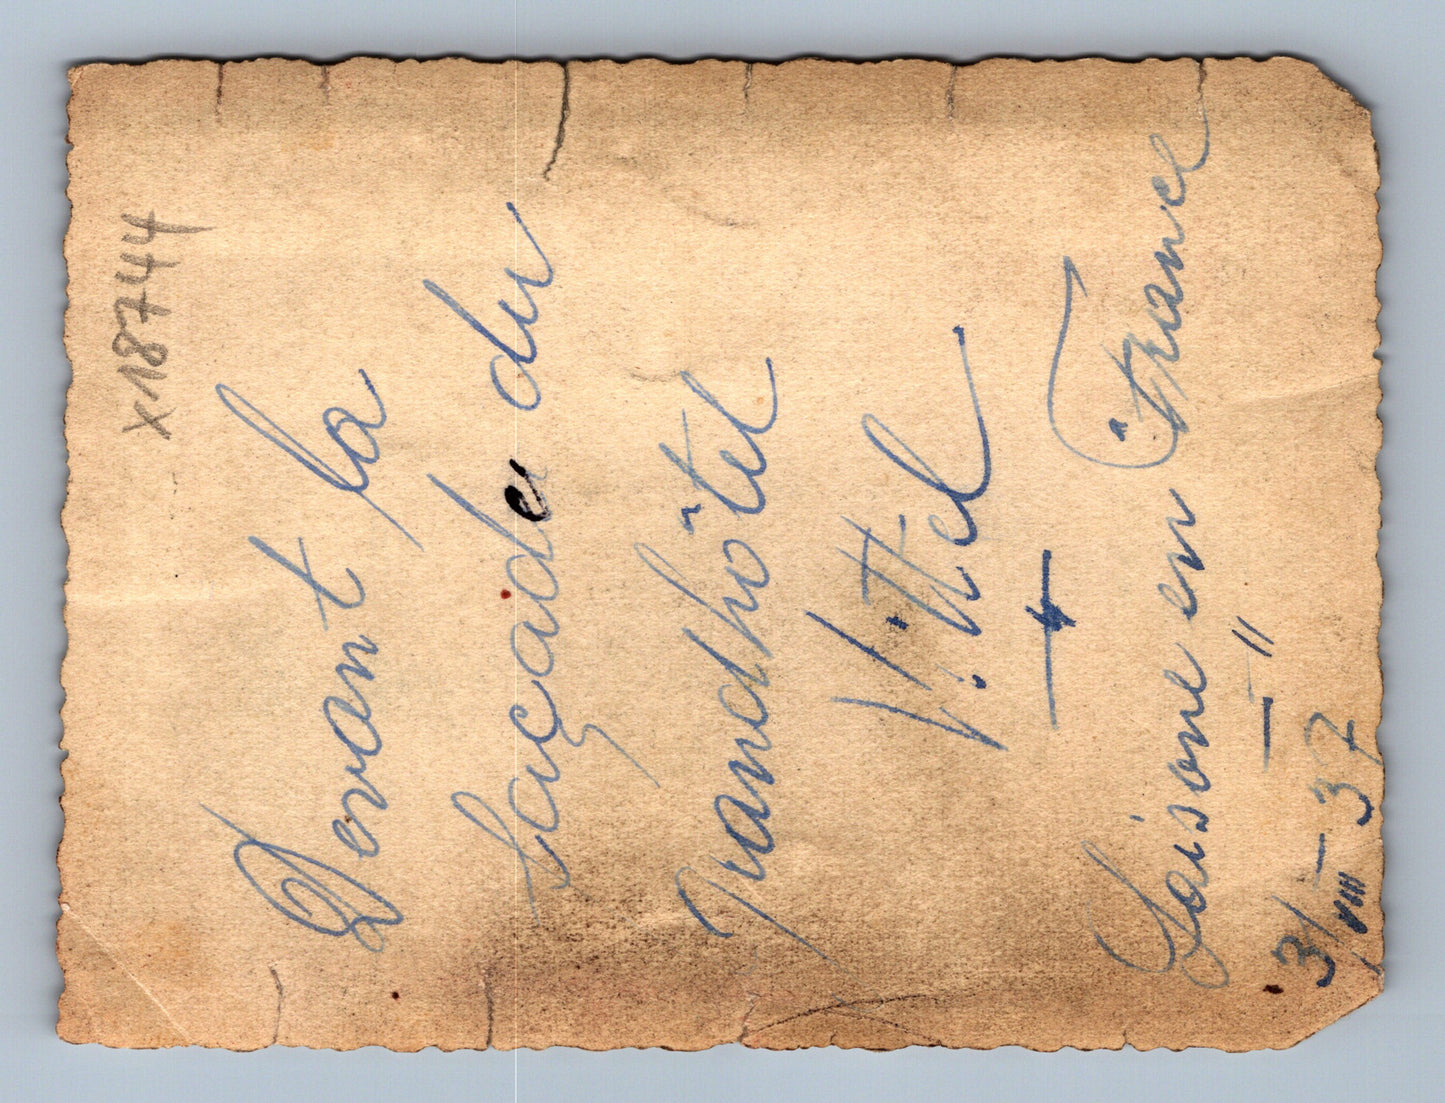 x 18744
Devant la
façade du
grandhôtel
Vittel
Saisone en France
31/VIII - 37